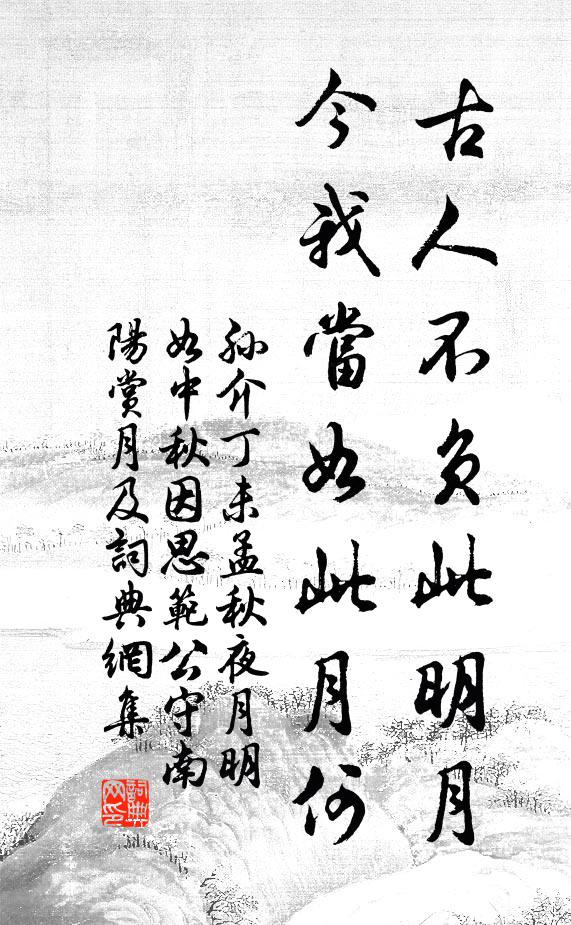 古人不負此明月
今我當如此月何
孙介丁未孟秋夜月明
如中秋因思範公守南
陽賞月及詞典網集
詞典
网印